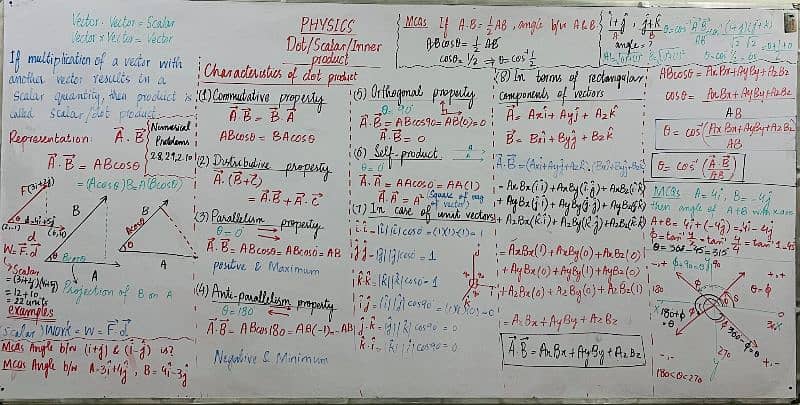 Vector · Vector = Scalar
Vector × Vector = Vector
If multiplication of a vector with
another vector results in a
scalar quantity, then product is
called scalar/dot product.
Representation: A⃗ · B⃗
Numerical
Problems
2.8, 2.9, 2.10
A⃗ · B⃗ = ABcosθ
= (Acosθ)B = A(Bcosθ)
F(3i+2j)
d=4i+5j
B
θ
Bcosθ
A
B
Acosθ
θ
A
W = F⃗ · d⃗
Scalar
= 12 + 10
= 22 units
Projection of B on A
examples
Scalar) Work = W = F⃗ · d⃗
MCQs Angle b/w (i+j) & (i-j) is?
MCQs Angle b/w A=3i+4j, B=4i-3j
PHYSICS
Dot/Scalar/Inner
product
Characteristics of dot product
(1) Commutative property
A⃗ · B⃗ = B⃗ · A⃗
ABcosθ = BAcosθ
(2) Distributive property
A⃗ · (B⃗ + C⃗)
= A⃗ · B⃗ + A⃗ · C⃗
(3) Parallelism property
θ = 0
A⃗ · B⃗ = ABcosθ = ABcos0 = AB
positive & Maximum
(4) Anti-parallelism property
θ = 180
A⃗ · B⃗ = ABcos180 = AB(-1) = -AB
Negative & Minimum
(5) Orthogonal property
θ = 90
A⃗ · B⃗ = ABcos90 = AB(0) = 0
A⃗ · B⃗ = 0
(6) Self-product
θ = 0
A⃗ · A⃗ = AAcos0 = AA(1)
A⃗ · A⃗ = A² (Square of mag
of vector)
(7) In case of unit vectors
i · i = |i||i|cos0 = (1)(1)(1) = 1
j · j = |j||j|cos0 = 1
k · k = |k||k|cos0 = 1
i · j = |i||j|cos90 = (1)(1)(0) = 0
j · k = |j||k|cos90 = 0
k · i = |k||i|cos90 = 0
MCQs If A · B = ½ AB, angle b/w A & B
ABcosθ = ½ AB
cosθ = 1/2 → θ = cos⁻¹ ½
i+j, j+k
angle = ?
(8) In terms of rectangular
components of vectors
A⃗ = Axi + Ayj + Azk
B⃗ = Bxi + Byj + Bzk
A⃗ · B⃗ = (Axi + Ayj + Azk) · (Bxi + Byj + Bzk)
= AxBx(i·i) + AxBy(i·j) + AxBz(i·k)
+ AyBx(j·i) + AyBy(j·j) + AyBz(j·k)
+ AzBx(k·i) + AzBy(k·j) + AzBz(k·k)
= AxBx(1) + AxBy(0) + AxBz(0)
+ AyBx(0) + AyBy(1) + AyBz(0)
+ AzBx(0) + AzBy(0) + AzBz(1)
= AxBx + AyBy + AzBz
A⃗ · B⃗ = AxBx + AyBy + AzBz
ABcosθ = AxBx + AyBy + AzBz
cosθ = AxBx + AyBy + AzBz
AB
θ = cos⁻¹ (AxBx + AyBy + AzBz
AB)
θ = cos⁻¹ (A⃗ · B⃗
AB)
MCQs A = 4i, B = -4j
then angle of A+B with x-axis
A+B = 4i + (-4j) = 4i - 4j
θ = 360 - 45 = 315
90
+,+
θ = Φ
180
0
360
180+Φ
= θ
360-Φ = θ
270
-,-
+,-
180<θ<270